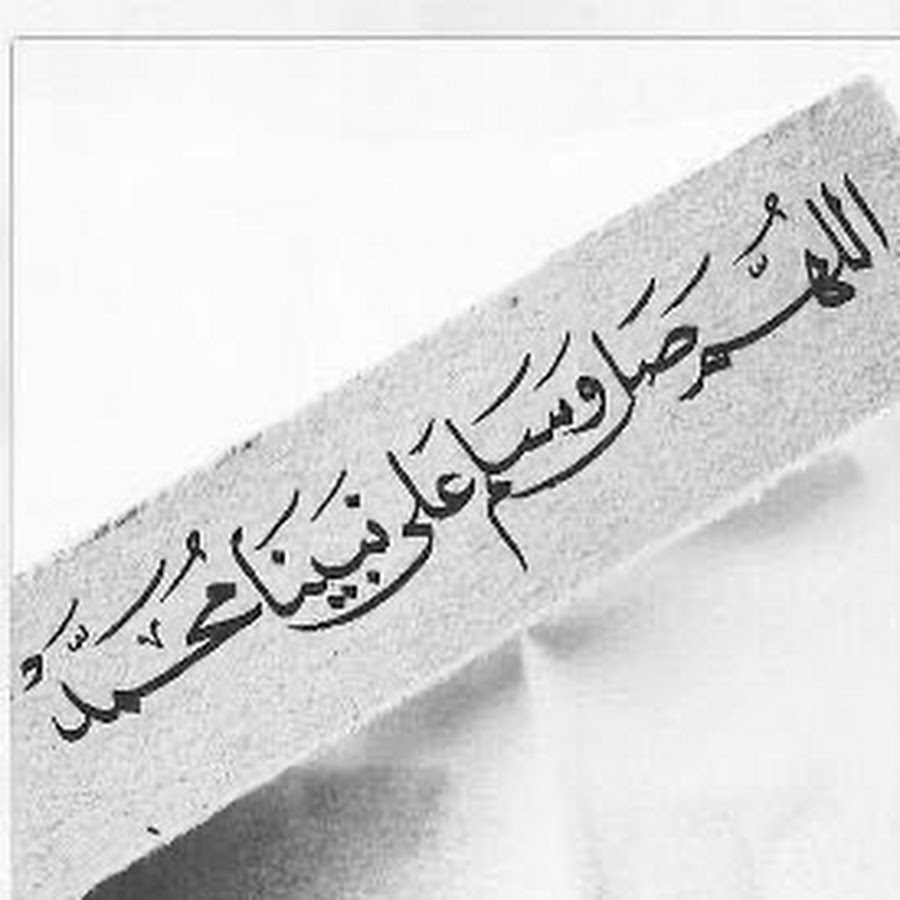 اللهم صل وسلم على نبينا محمد